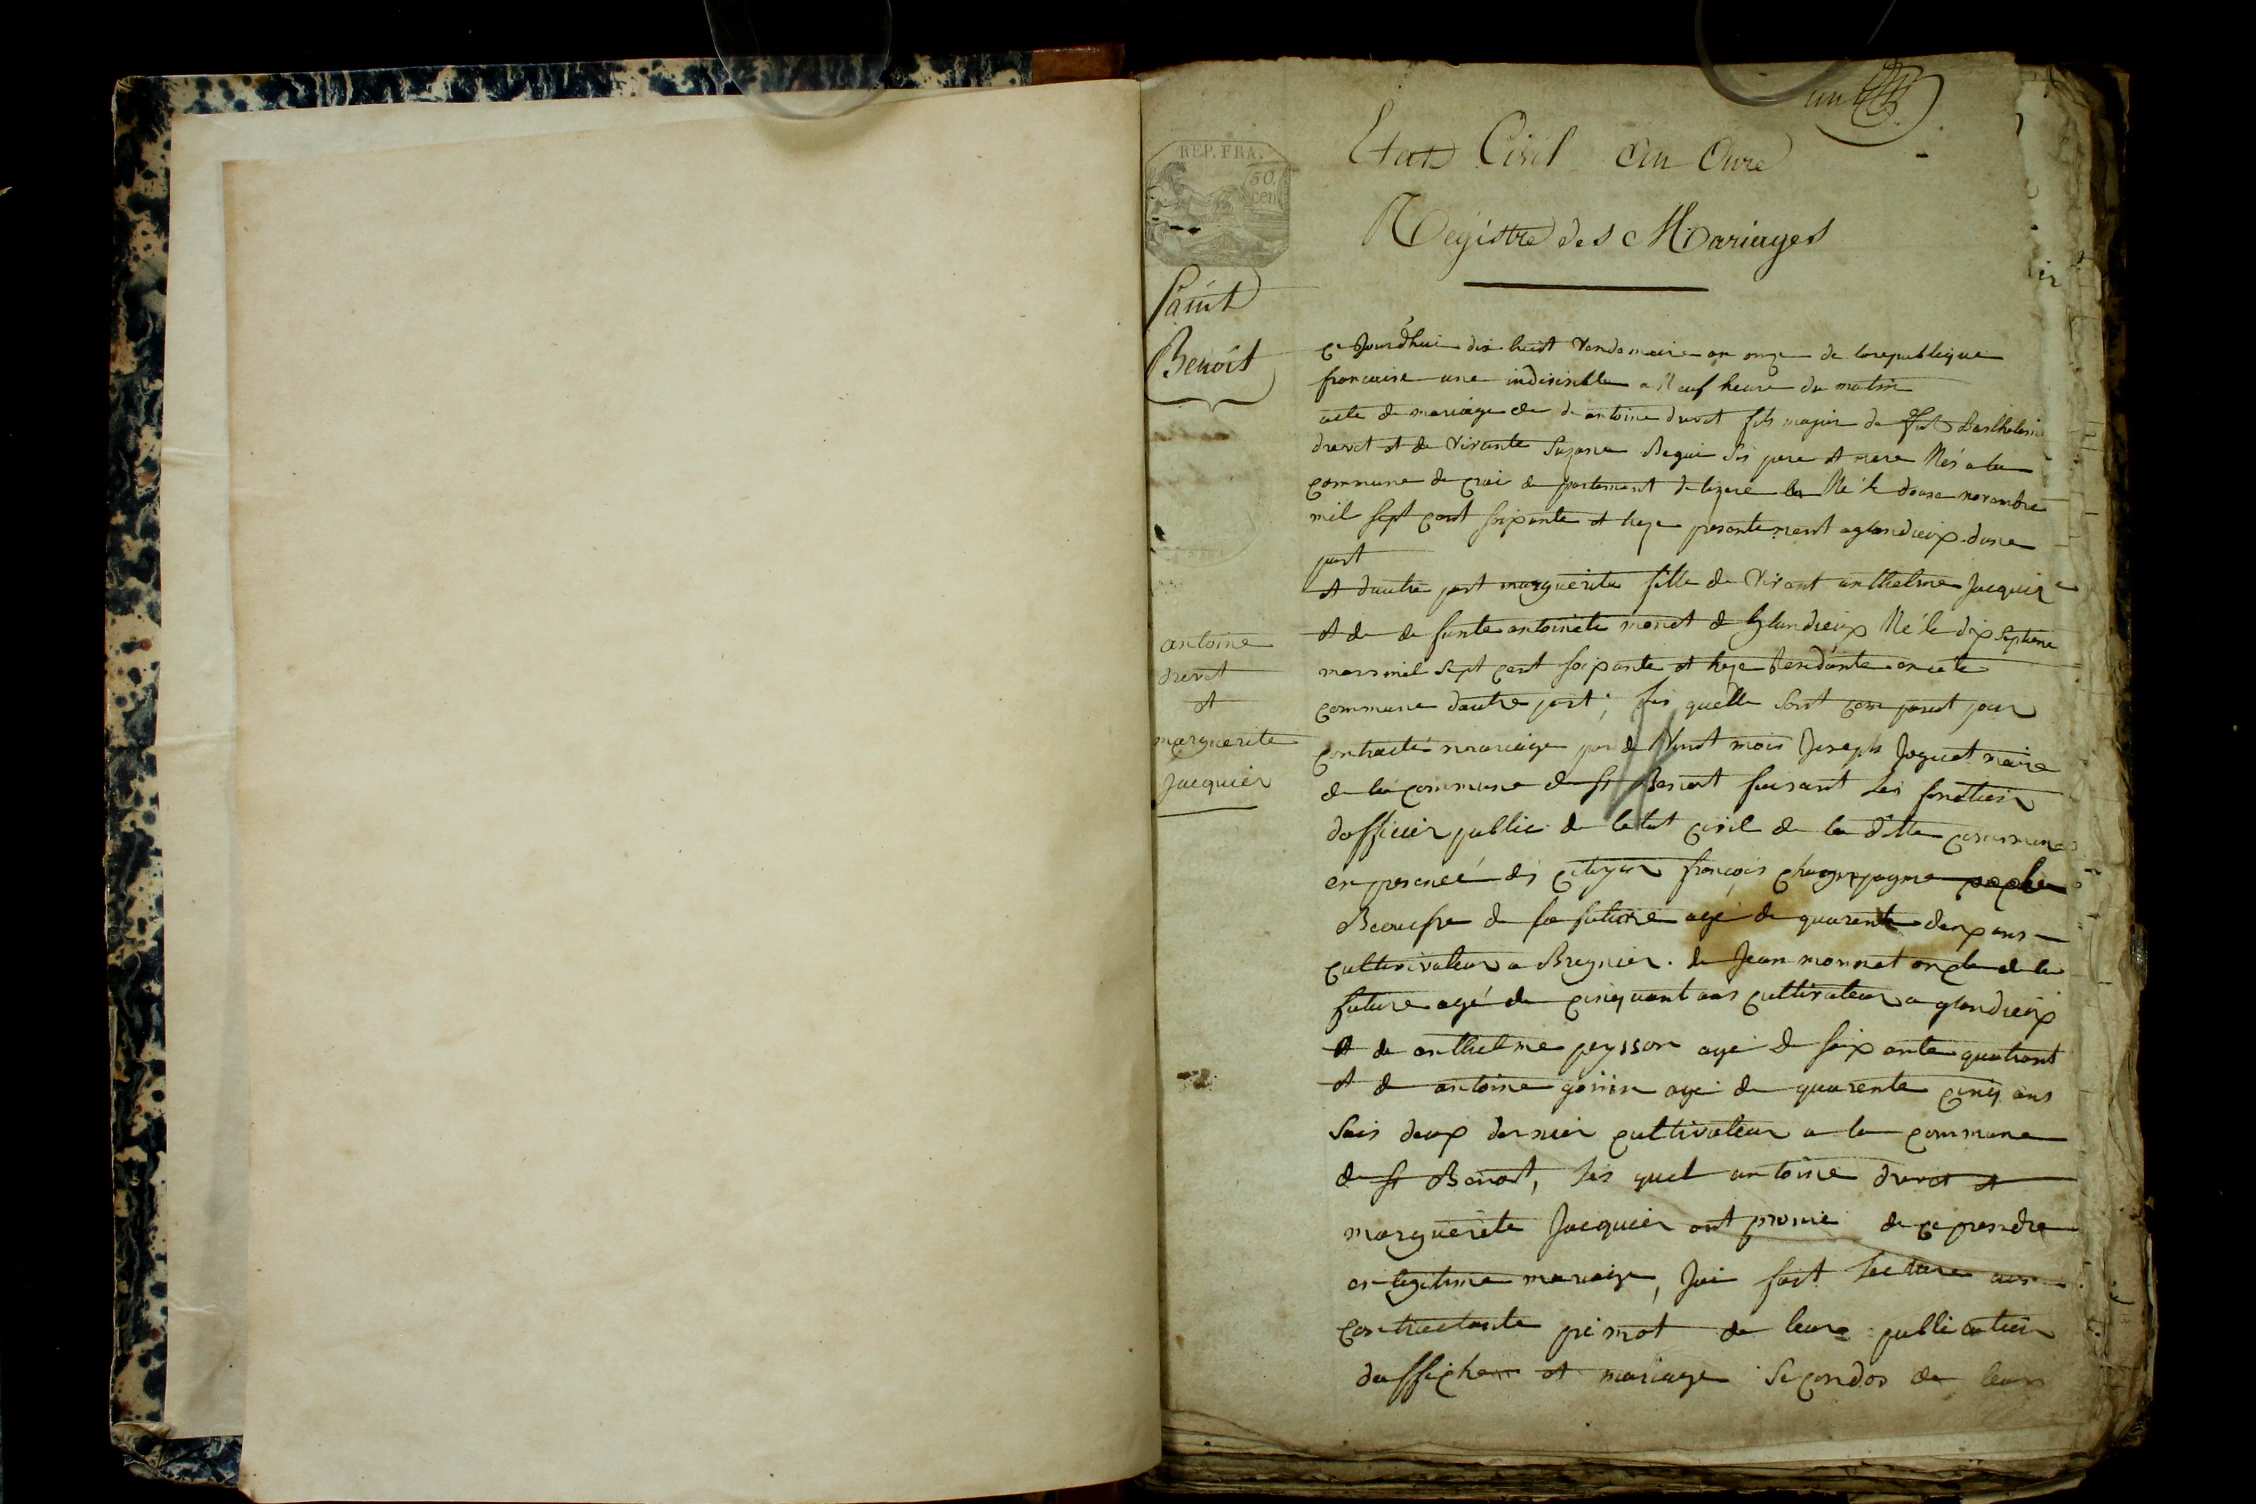 un
REP. FRA.
50
cen
Etat Civil An Onze
Régistre des Mariages
Saint
Benoit
Ce Jourdhui dix huit Vandemaire an onze de la republique
francaise une indivisible a Neuf heure du matin
acte de mariage de de antoine drevet fils majeur de feu Barthelemi
drevet et de Vivante Suzane Seguin Ses pere et mere Nés a la
commune de departement de lizere Né le douse novambre
mil sept cent soixante et seze presentement a glandieux dune
part
et dautre part marguerite fille de Vivant anthelme Jacquier
et de de funte antoinete monet de glandieux Né le dix septieme
mars mil sept cent soixante et seze Residante en cete
commune dautre part ; les quelle sont comparut pour
contracté mariage par de Vent mois Joseph Joguet maire
de la commune de St Benoit faisant Les fonction
dofficier public de letat civil de la ditte commune
en presence des citoyen françois champagne
Beaufre de la future agé de quarente deux ans
cultivateur a Bregnier. de Jean monnet oncle de la
future agé de cinquant ans cultivateur a glandieux
et de anthelme peysson agé de soixante quatrant
et de antoine gonin agé de quarente cinq ans
Sais deux dernier cultivateur a la commune
de St Benoit, les quel antoine drevet et
marguerite Jacquier ont promie de ce prendre
en legitime mariage, Jai fait Lecture aux
contractante primot de leure publication
daffiche et mariage Secondos de leur
antoine
drevet
et
marguerite
Jacquier